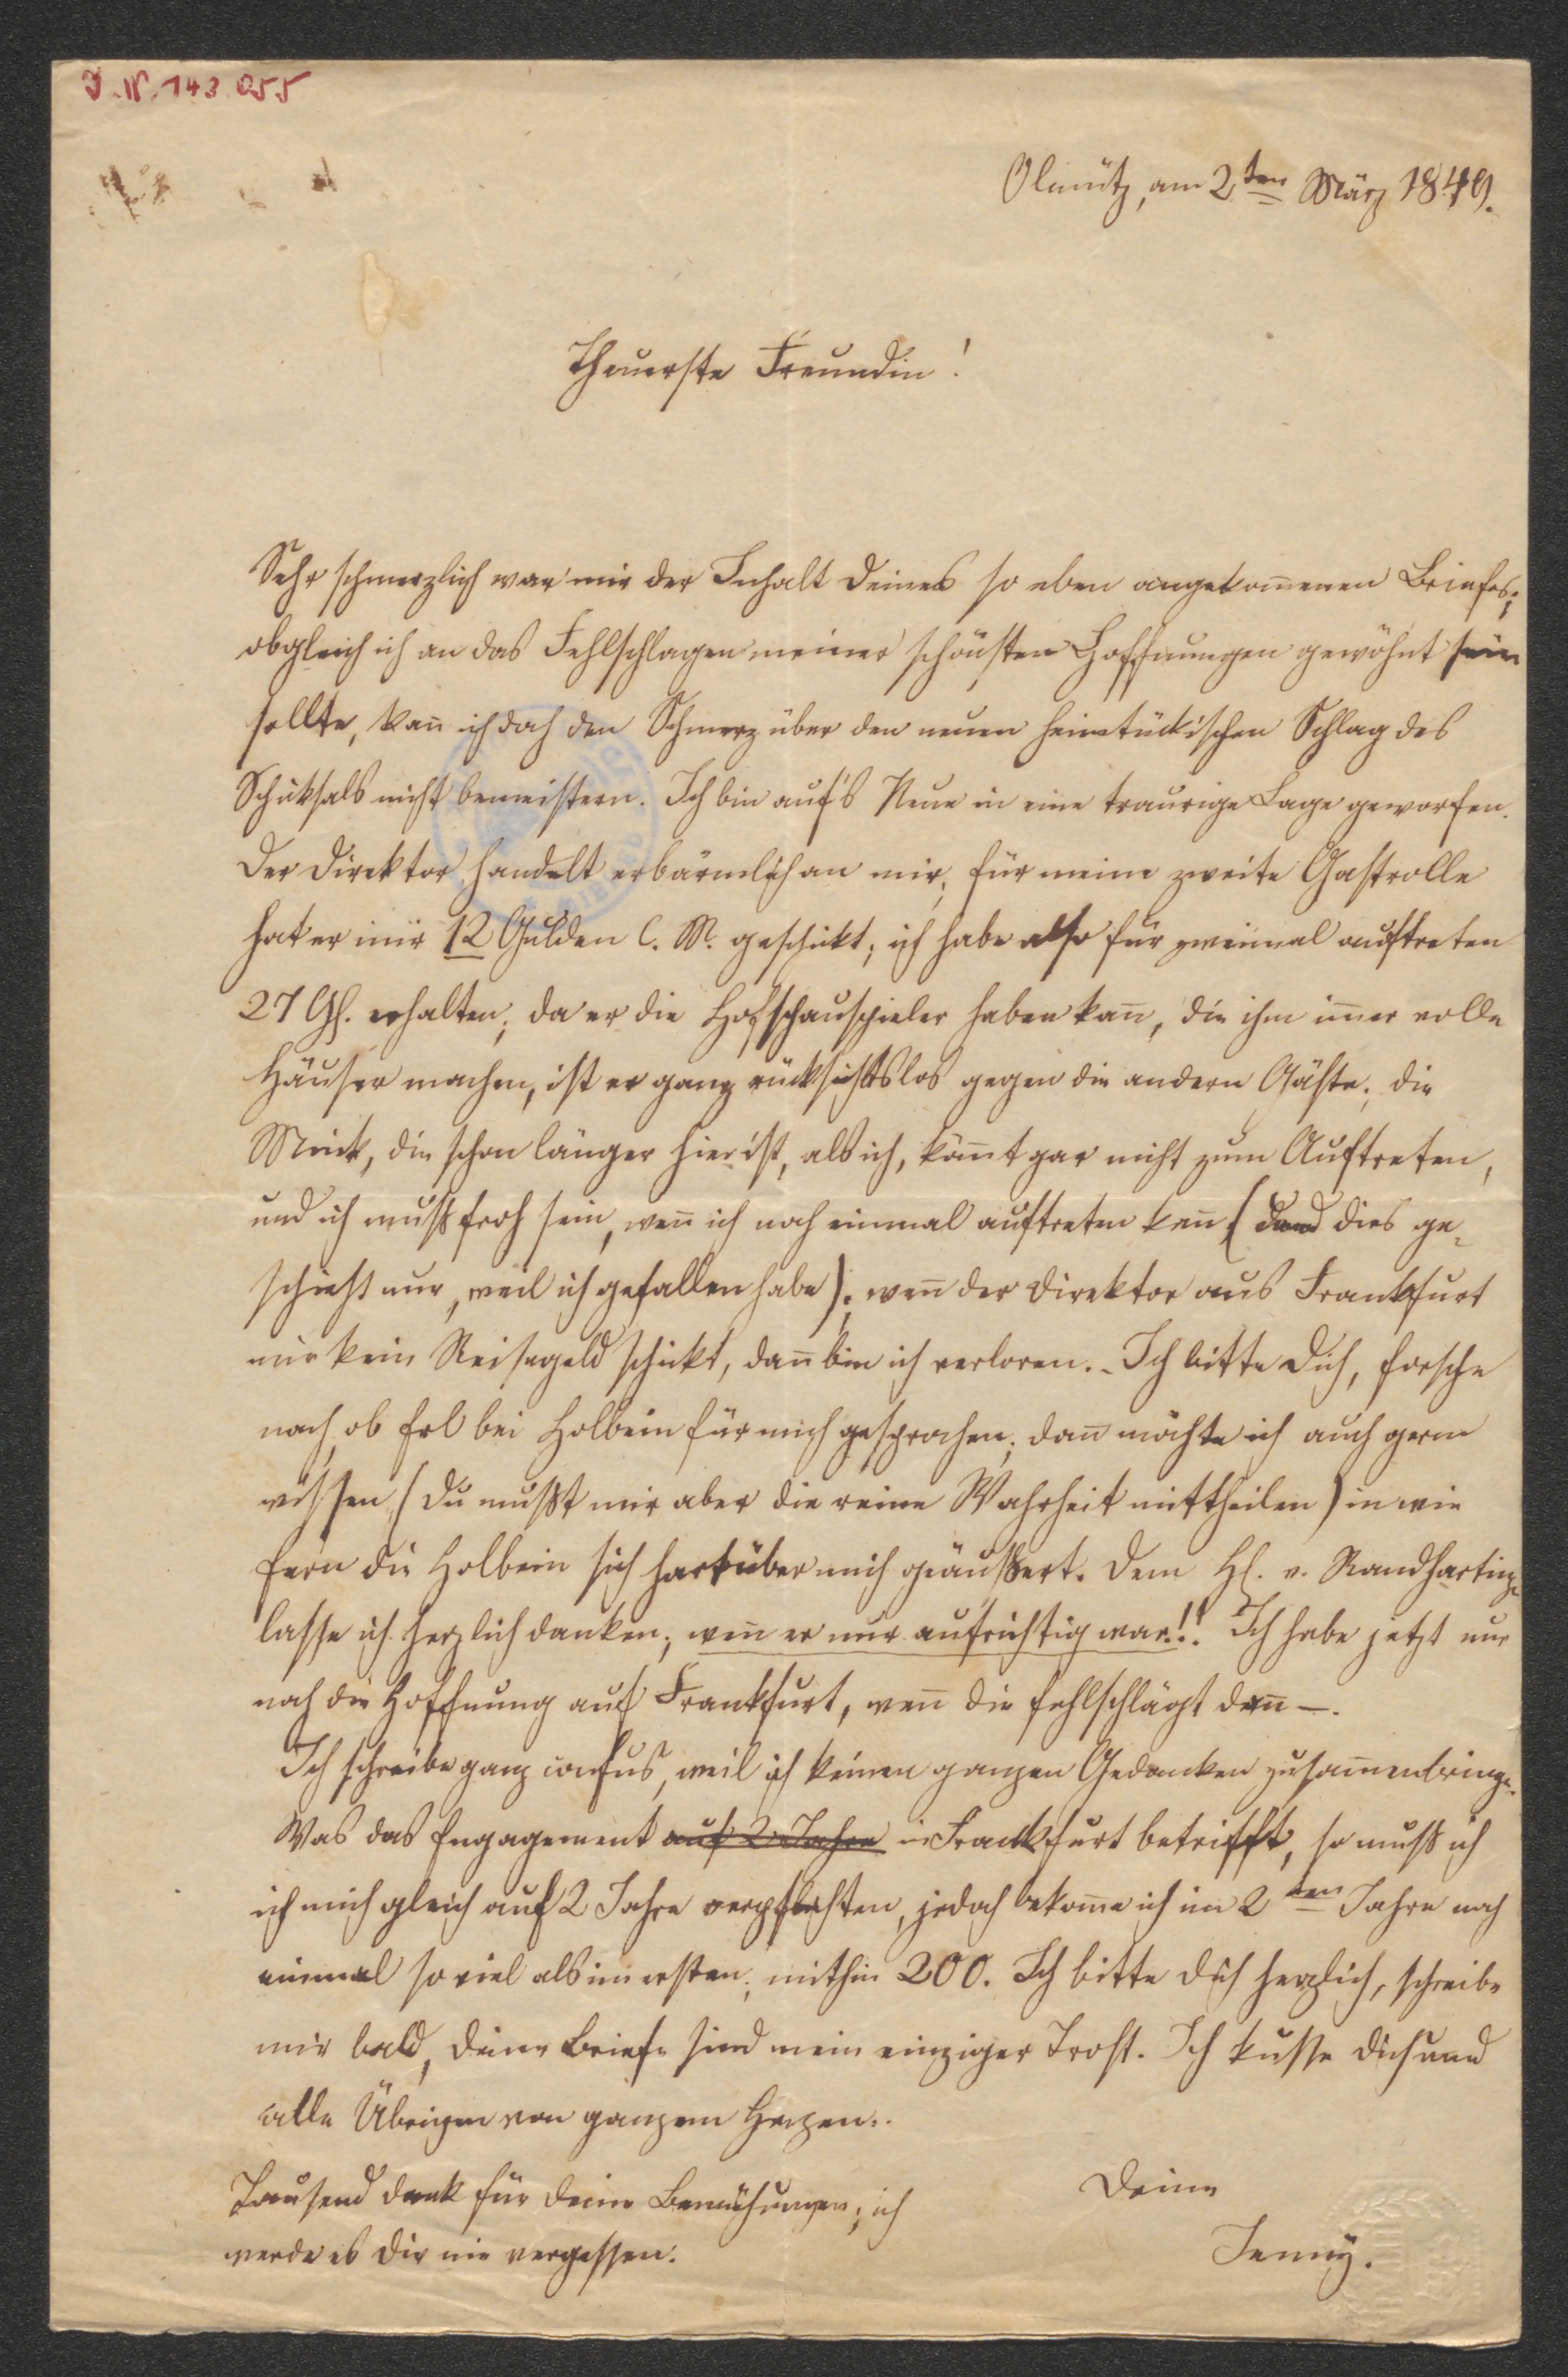 J.N. 143.055
Olmütz, am 2ten März 1849.
Theuerste Freundin!
Sehr schmerzlich war mir der Inhalt Deines so eben angekom̅enen Briefes;
obgleich ich an das Fehlschlagen meiner schönsten Hoffnungen gewöhnt sein
sollte, kan̅ ich doch den Schmerz über den neuen heimtückischen Schlag des
Schiksals nicht bemeistern. Ich bin auf's Neue in eine traurige Lage geworfen.
Der Direktor handelt erbärmlich an mir, für meine zweite Gastrolle
hat er mir 12 Gulden C. M. geschikt; ich habe also für zweimal auftreten
27 Gl. erhalten; da er die Hofschauspieler haben kan̅, die ihm im̅er volle
Häuser machen, ist er ganz rücksichtslos gegen die andern Gäste; die
Mink, die schon länger hier ist, als ich, köm̅t gar nicht zum Auftreten,
und ich muß froh sein, wen̅ ich noch einmal auftreten kan̅ (und dies ge-
schieht nur, weil ich gefallen habe); wen̅ der Direktor aus Frankfurt
mir kein Reisegeld schikt, dan̅ bin ich verloren. - Ich bitte Dich, forsche
nach, ob Erl bei Holbein für mich gesprochen; dan̅ möchte ich auch gerne
wissen (Du mußt mir aber die reine Wahrheit mittheilen) in wie
fern die Holbein sich hart über mich geäußert. Dem H. v. Randharting
lasse ich herzlich danken; wen̅ er nur aufrichtig war!!! Ich habe jetzt nur
noch die Hoffnung auf Frankfurt, wen̅ die fehlschlägt dan̅ —.
Ich schreibe ganz confus, weil ich keinen ganzen Gedanken zusam̅enbringe.
Was das Engagement auf 2 Jahre in Frankfurt betrifft, so muß ich
ich mich gleich auf 2 Jahre verpflichten, jedoch bekom̅e ich im 2ten Jahre noch
einmal so viel als im ersten; mithin 200. Ich bitte Dich herzlich, schreibe
mir bald, Deine Briefe sind mein einziger Trost. Ich küsse Dich und
alle Übrigen von ganzem Herzen.
Tausend Dank für Deine Bemühungen; ich
werde es Dir nie vergessen.
Deine
Jenny.